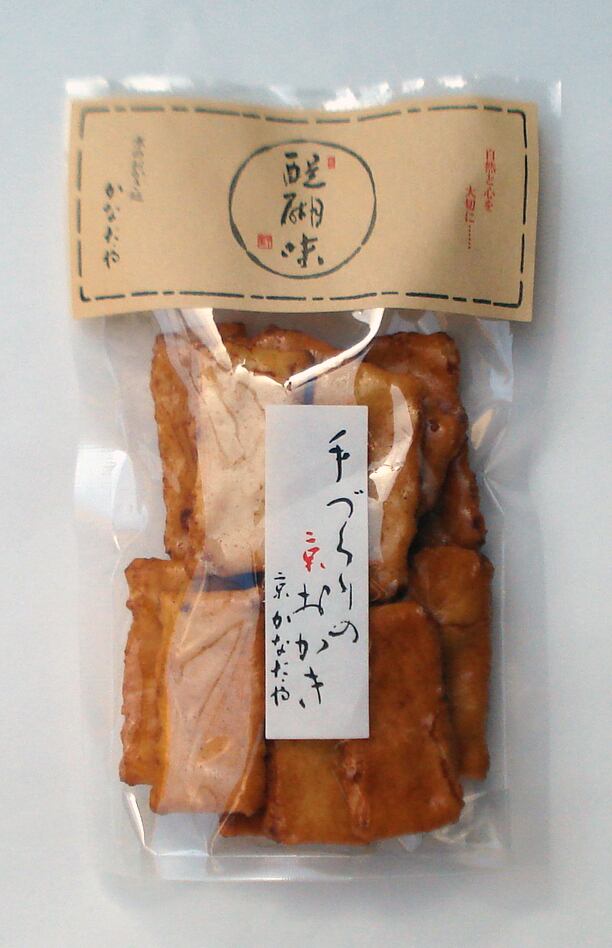 自然と心を
大切に……
醍醐味
かなだや
手づくりの
京おかき
京かなだや